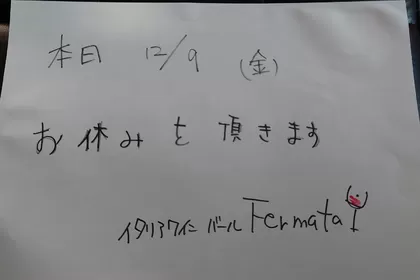 本日 12/9 (金)
お休みを頂きます
イタリアワインバール Fermata